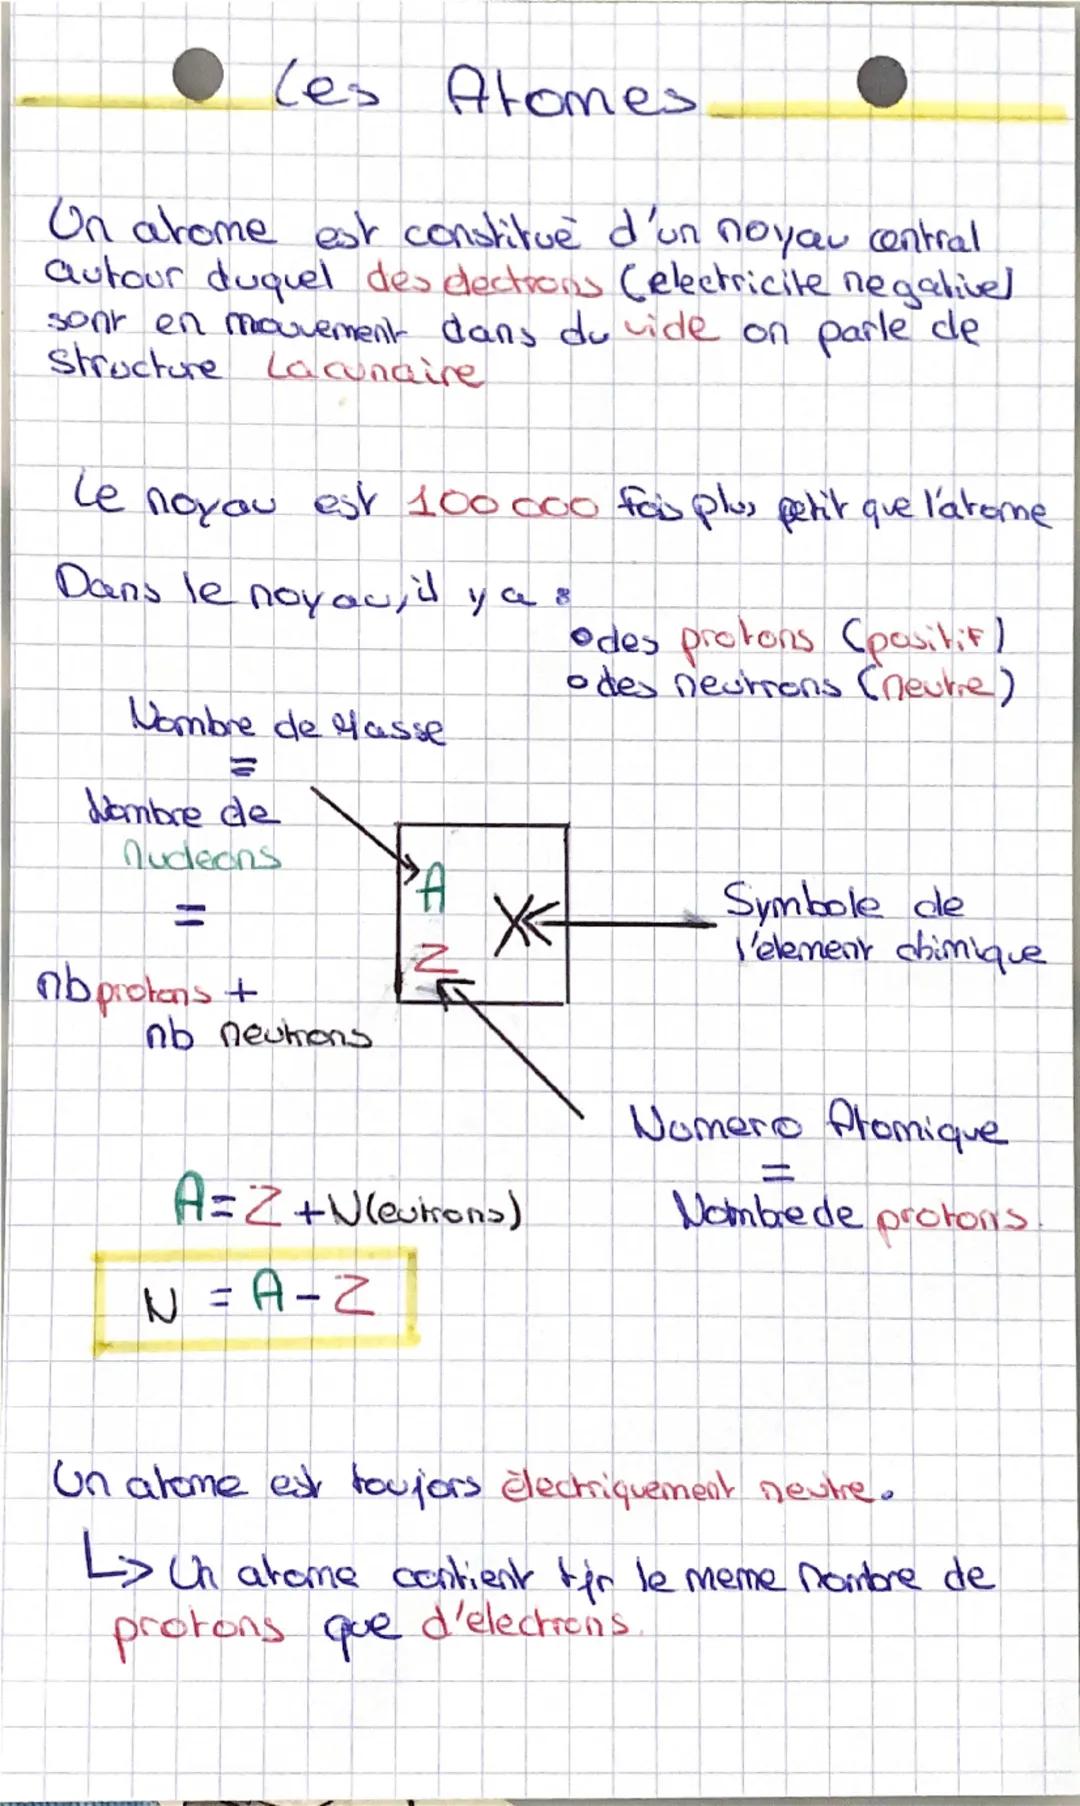 Les Atomes
Un atome est constitué d'un noyau central
autour duquel des electrons (electricite negative)
sont en mouvement dans du vide on parle de
structure Lacunaire
Le noyau est 100 000 fois plus petit que l'atome
Dans le noyau, il y a :
des protons (positif)
des neutrons (neutre)
Nombre de Masse
=
Nombre de
nucleons
=
nb protons +
nb neutrons
A
Z
X
Symbole de
l'element chimique
Numero Atomique
=
Nombre de protons.
A = Z + N(eutrons)
N = A - Z
Un atome est toujors électriquement neutre.
↳ Un atome contient tjr le meme nombre de
protons que d'electrons.